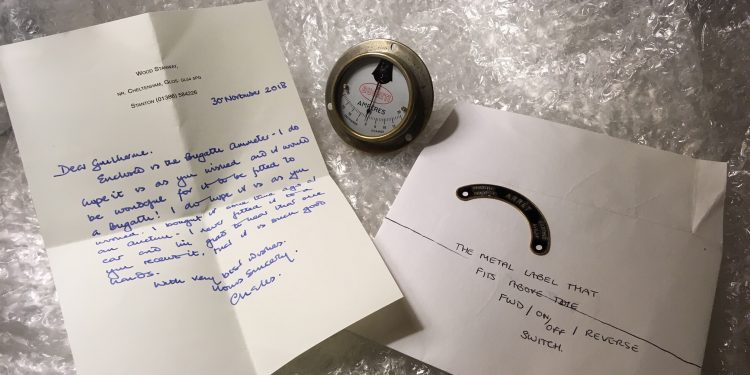 WOOD STANWAY,
NR. CHELTENHAM, GLOS. GL54 5PG
STANTON (01386) 584226
30 November 2018
Dear Guilherme.
Enclosed is the Bregath Ammeter - I do
hope it is as you wished and it would
be wonderful for it to be fitted to
a Bregath! I do hope it is as you
wished. I bought it some time ago at
an auction. I never fitted it to a
car and I'm glad to hear that once
you receive it, that it is such good
hands.
With very best wishes.
Yours Sincerely.
Charles.
AMPERES
ARRET
THE METAL LABEL THAT
FITS ABOVE THE
FWD / ON / OFF / REVERSE
SWITCH.